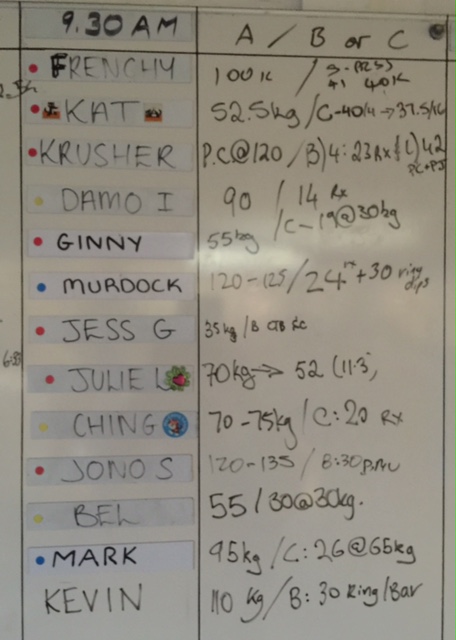 9.30 AM A / B or C
FRENCHY 100K / 40K
KAT 52.5kg /C-40/4 → 37.5/
KRUSHER P.C@120 / B) 4:23 Rx 42
PC+PJ
DAMO I 90 / 14 Rx
GINNY 55kg /C-19@30kg
MURDOCK 120-125/24 rx +30 ring dips
JESS G 35kg / B
JULIE L 70kg → 52 (11.3)
CHING 70-75kg / C:20 Rx
JONO S 120-135 / B:30
BEL 55/30@30kg.
MARK 95kg / C: 26@65kg
KEVIN 110 kg / B: 30 Ring/Bar